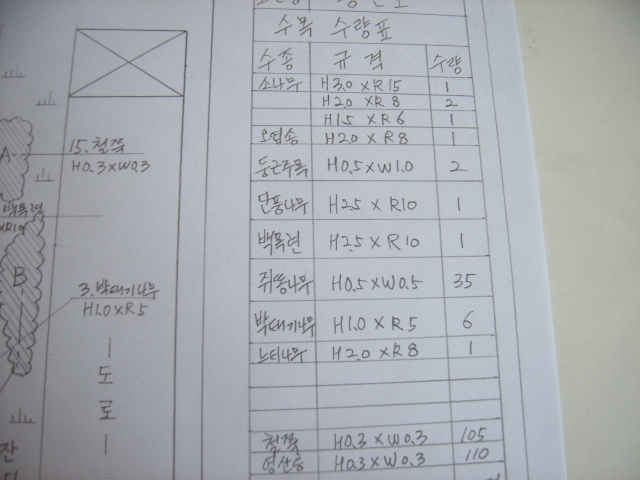 수목 수량표
수종 규격 수량
소나무 H3.0 x R15 1
H2.0 x R8 2
H1.5 x R6 1
오엽송 H2.0 x R8 1
둥근주목 H0.5 x W1.0 2
단풍나무 H2.5 x R10 1
백목련 H2.5 x R10 1
쥐똥나무 H0.5 x W0.5 35
박태기나무 H1.0 x R5 6
느티나무 H2.0 x R8 1
철쭉 H0.3 x W0.3 105
영산홍 H0.3 x W0.3 110
A
15. 철쭉
H0.3 x W0.3
백목련
xR10
B
3. 박태기나무
H1.0 x R5
도
로
잔